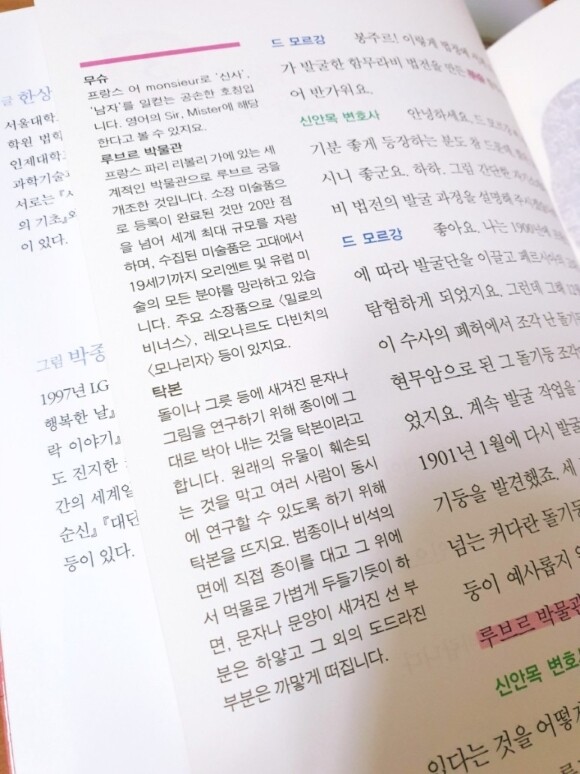 글 한상
서울대학
학원 법학
인제대학교
과학기술
서로는
의 기초
이 있다.
그림 박종
1997년 LG
행복한 날』
락 이야기』
도 진지한
간의 세계일
순신』 『대단
등이 있다.
무슈
프랑스 어 monsieur로 '신사',
'남자'를 일컫는 공손한 호칭입
니다. 영어의 Sir, Mister에 해당
한다고 볼 수 있지요.
루브르 박물관
프랑스 파리 리볼리 가에 있는 세
계적인 박물관으로 루브르 궁을
개조한 것입니다. 소장 미술품으
로 등록이 완료된 것만 20만 점
을 넘어 세계 최대 규모를 자랑
하며, 수집된 미술품은 고대에서
19세기까지 오리엔트 및 유럽 미
술의 모든 분야를 망라하고 있습
니다. 주요 소장품으로 〈밀로의
비너스〉, 레오나르도 다빈치의
〈모나리자〉 등이 있지요.
탁본
돌이나 그릇 등에 새겨진 문자나
그림을 연구하기 위해 종이에 그
대로 박아 내는 것을 탁본이라고
합니다. 원래의 유물이 훼손되
는 것을 막고 여러 사람이 동시
에 연구할 수 있도록 하기 위해
탁본을 뜨지요. 범종이나 비석의
면에 직접 종이를 대고 그 위에
서 먹물로 가볍게 두들기듯이 하
면, 문자나 문양이 새겨진 선 부
분은 하얗고 그 외의 도드라진
부분은 까맣게 떠집니다.
드 모르강 봉주르! 이렇게 법정에
가 발굴한 함무라비 법전을 만든
어 반가워요.
신안목 변호사 안녕하세요, 드 모르강
기분 좋게 등장하는 분도 참 드문데
시니 좋군요. 하하. 그럼 간단한
비 법전의 발굴 과정을 설명해 주시겠습
드 모르강 좋아요. 나는
에 따라 발굴단을 이끌고 페르시아
탐험하게 되었지요. 그런데 그해 12
이 수사의 폐허에서 조각 난 돌기
현무암으로 된 그 돌기둥 조각
었지요. 계속 발굴 작업을
1901년 1월에 다시 발굴
기둥을 발견했죠. 세
넘는 커다란 돌기둥
둥이 예사롭지 않
루브르 박물관
신안목 변호사
있다는 것을 어떻게